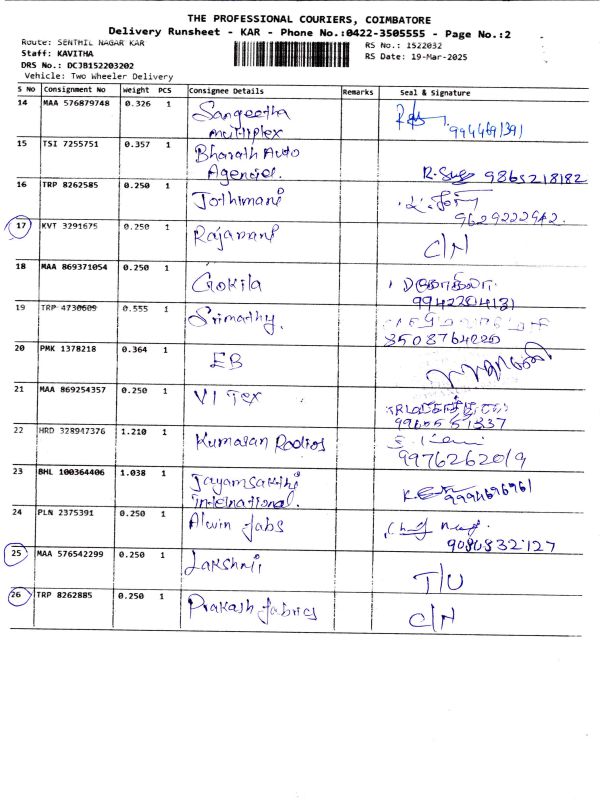 THE PROFESSIONAL COURIERS, COIMBATORE
Delivery Runsheet - KAR - Phone No.:0422-3505555 - Page No.:2
Route: SENTHIL NAGAR KAR
Staff: KAVITHA
DRS No.: DCJB152203202
Vehicle: Two Wheeler Delivery
RS No.: 1522032
RS Date: 19-Mar-2025
S No Consignment No Weight PCS Consignee Details Remarks Seal & Signature
14 MAA 576879748 0.326 1 Sangeetha
multiplex
15 TSI 7255751 0.357 1 Bharath Auto
Agencies. 9865218182
16 TRP 8262585 0.250 1 Jothimani
9629222942.
17 KVT 3291675 0.250 1 Rajamani C/N
18 MAA 869371054 0.250 1 Gokila
9942204131
19 TRP 4730609 0.555 1 Srimathy.
8508764220
20 PMK 1378218 0.364 1 EB
21 MAA 869254357 0.250 1 VI Tex
22 HRD 328947376 1.210 1 Kumaran Radios
9976262019
23 BHL 100364406 1.038 1 Jayamsakthi
international. 9994696961
24 PLN 2375391 0.250 1 Alwin fabs
25 MAA 576542299 0.250 1 Lakshmi T/U
26 TRP 8262885 0.250 1 Prakash fabrics C/N